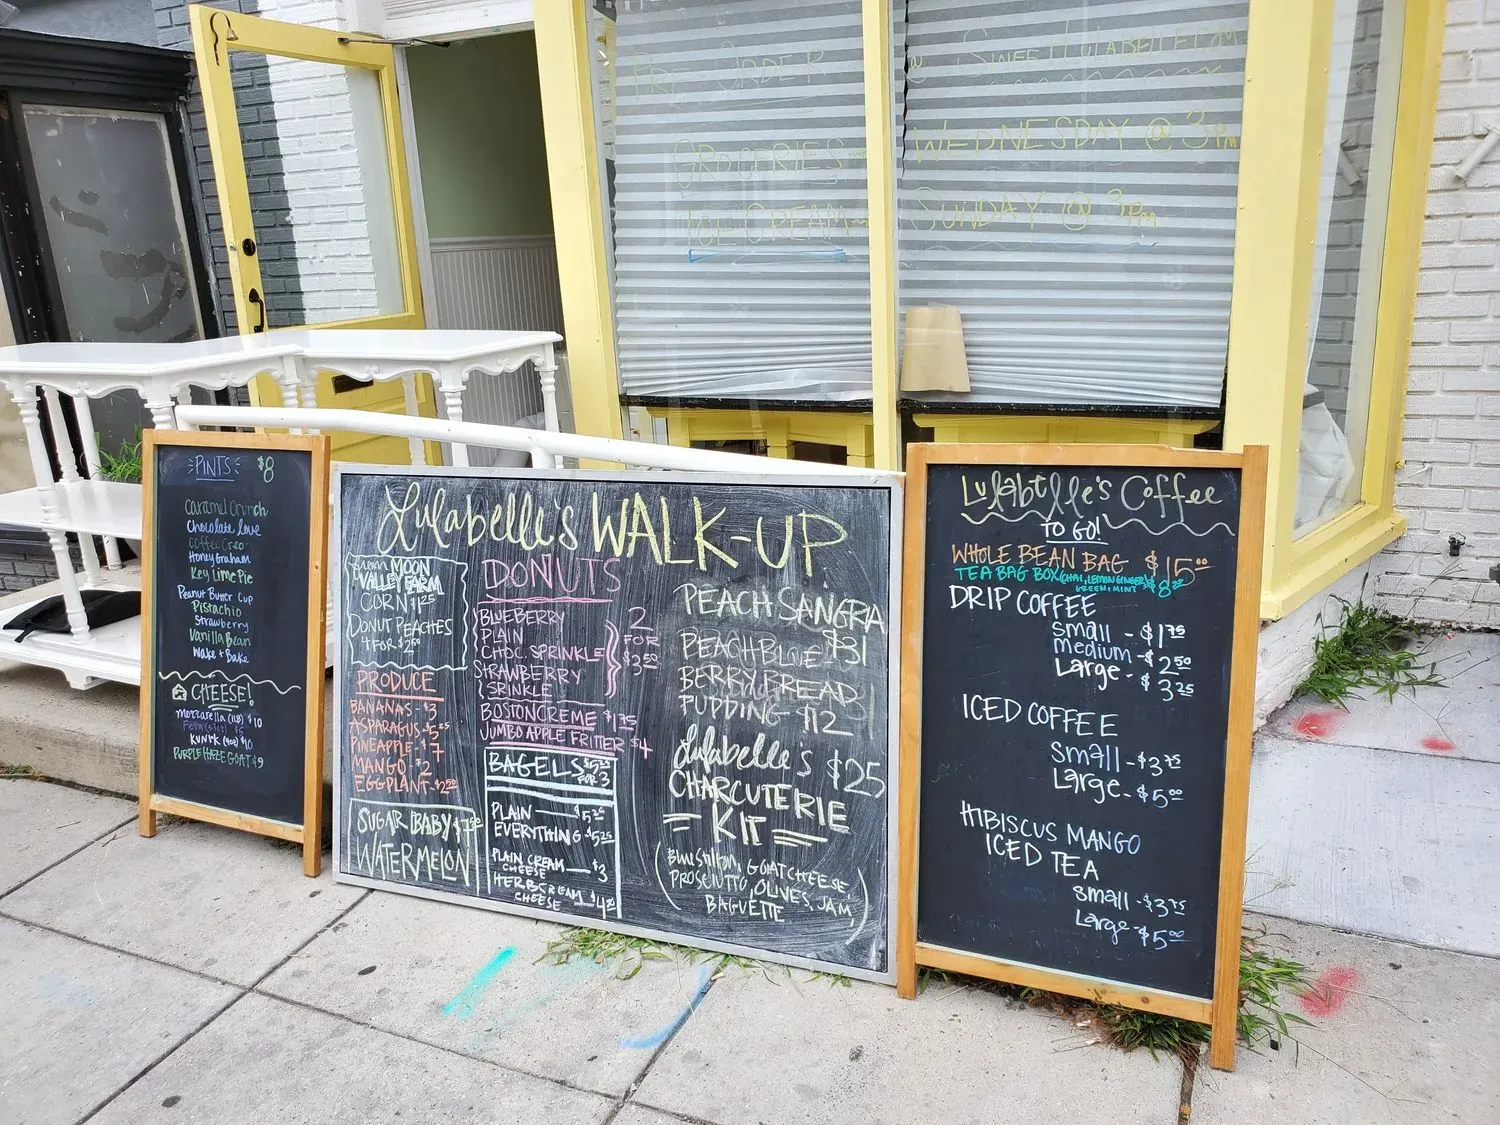 PRE-ORDER @ SWEETLULABELLE.COM
GROCERIES WEDNESDAY @ 3PM
ICE CREAM SUNDAY @ 3PM
PINTS $8
Caramel Crunch
Chocolate Love
Coffee Oreo
Honey Graham
Key Lime Pie
Peanut Butter Cup
Pistachio
Strawberry
Vanilla Bean
Wake + Bake
CHEESE!
Mozzarella (1LB) $10
$5
KUNIK (4oz) $10
PURPLE HAZE GOAT $9
Lulabelle's WALK-UP
from MOON
VALLEY FARM
CORN $1.25
DONUT PEACHES
1 FOR $2.50
PRODUCE
BANANAS - $3
ASPARAGUS - 5.25
PINEAPPLE - $7
MANGO - $2
EGGPLANT - $2.50
SUGAR BABY
WATERMELON
DONUTS
BLUEBERRY
PLAIN
CHOC. SPRINKLE
STRAWBERRY
SRINKLE
2
FOR
$3.50
BOSTON CREME $1.75
JUMBO APPLE FRITTER $4
BAGELS $5.25
FOR 3
PLAIN $5.25
EVERYTHING $5.25
PLAIN CREAM
CHEESE $3
HERB CREAM
CHEESE $4.20
PEACH SANGRIA
$31
PEACH BLUE-
BERRY BREAD
PUDDING - $12
Lulabelle's $25
CHARCUTERIE
KIT
(Blue Stilton, GOAT CHEESE,
PROSCIUTTO, OLIVES, JAM,
BAGUETTE)
Lulabelle's Coffee
TO GO!
WHOLE BEAN BAG $15.00
TEA BAG BOX (CHAI, LEMON GINGER, $8.25
GREEN + MINT)
DRIP COFFEE
small - $1.75
medium - $2.50
Large - $3.25
ICED COFFEE
Small - $3.75
Large - $5.00
HIBISCUS MANGO
ICED TEA
small - $3.75
Large - $5.00